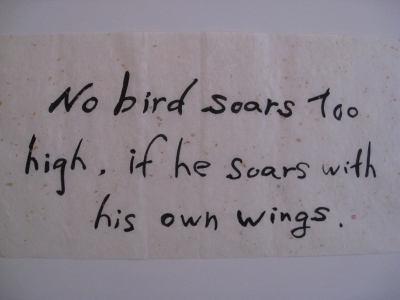 No bird soars Too
high, if he soars with
his own wings.